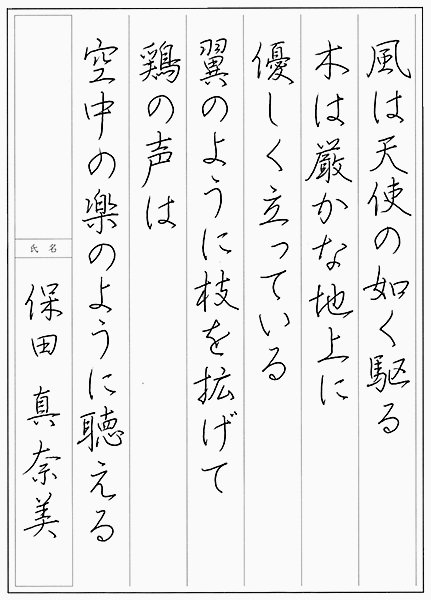 風は天使の如く駆る
木は厳かな地上に
優しく立っている
翼のように枝を拡げて
鶏の声は
空中の楽のように聴える
氏名
保田真奈美